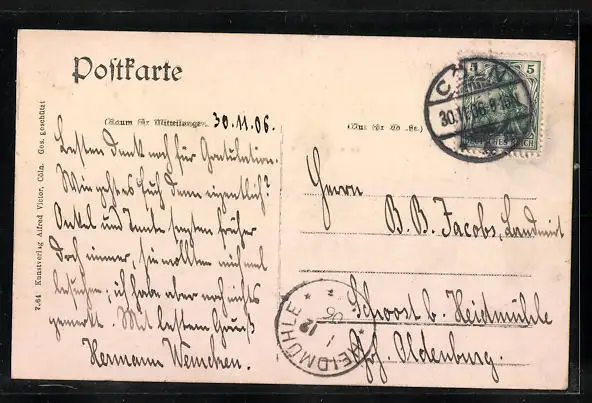 Postkarte
(Raum für Mitteilungen.)
30.11.06.
(Nur für Adresse.)
Besten Dank noch für Gratulation.
Wie geht es Euch denn eigentlich?
Onkel und Tante sagten früher
doch immer, sie wollten mich mal
besuchen, ich habe aber noch nichts
gemerkt. Mit bestem Gruß
Hermann Wemcken.
Herrn
B. B. Jacobs, Landwirt
Schoost b. Heidmühle
Grj. Oldenburg.
CÖLN
30.11.06.8
5
DEUTSCHES REICH
HEIDMÜHLE
1 12 06
7.64 Kunstverlag Alfred Victor, Cöln. Ges. geschützt